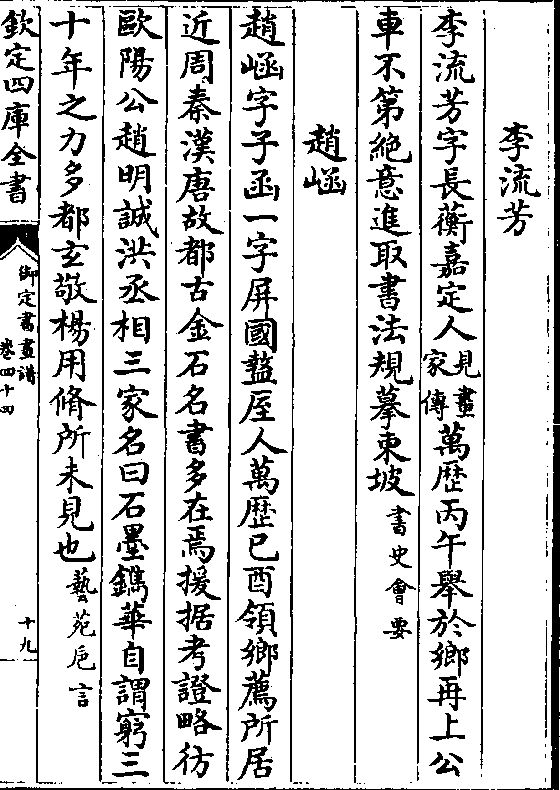 李流芳
李流芳字長蘅嘉定人見畫家傳萬歴丙午舉於鄉再上公
車不第絶意進取書法規摹東坡書史會要
趙崡
趙崡字子函一字屏國盩厔人萬歴己酉領鄉薦所居
近周秦漢唐故都古金石名書多在焉援据考證略彷
歐陽公趙明誠洪丞相三家名曰石墨鐫華自謂窮三
十年之力多都玄敬楊用脩所未見也藝苑巵言
欽定四庫全書
御定書畫譜
卷四十四
十九